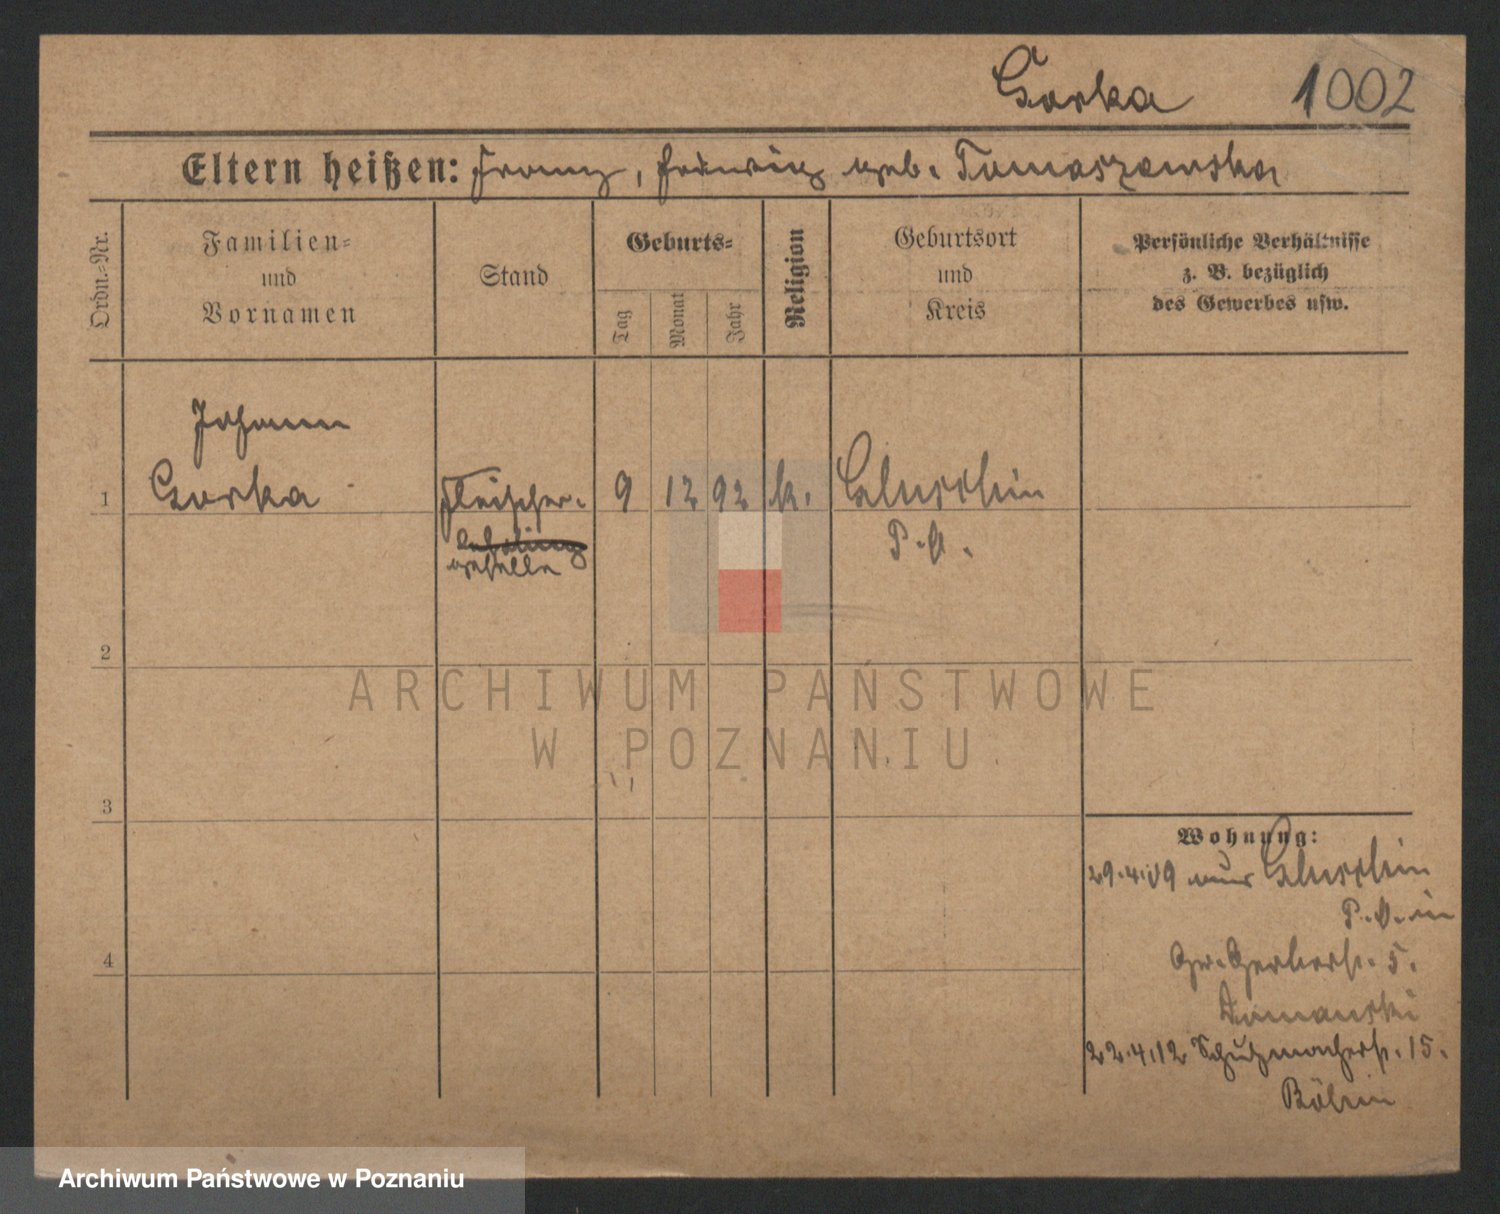 Gorka 1002
Eltern heißen: Franz, Hedwig geb. Tomaszewska
Ordn.-Nr.
Familien-
und
Vornamen
Stand
Geburts-
Tag
Monat
Jahr
Religion
Geburtsort
und
Kreis
Persönliche Verhältnisse
z. B. bezüglich
des Gewerbes usw.
Johann
1 Gorka Fleischer- 9 12 92 k.
geselle
P. O.
2
3
4
Wohnung:
29.4.09 aus
P. O. in
Gr. Gerberstr. 5.
Domanski
22.4.12 Schuhmacherstr. 15.
ARCHIWUM PAŃSTWOWE
W POZNANIU
Archiwum Państwowe w Poznaniu